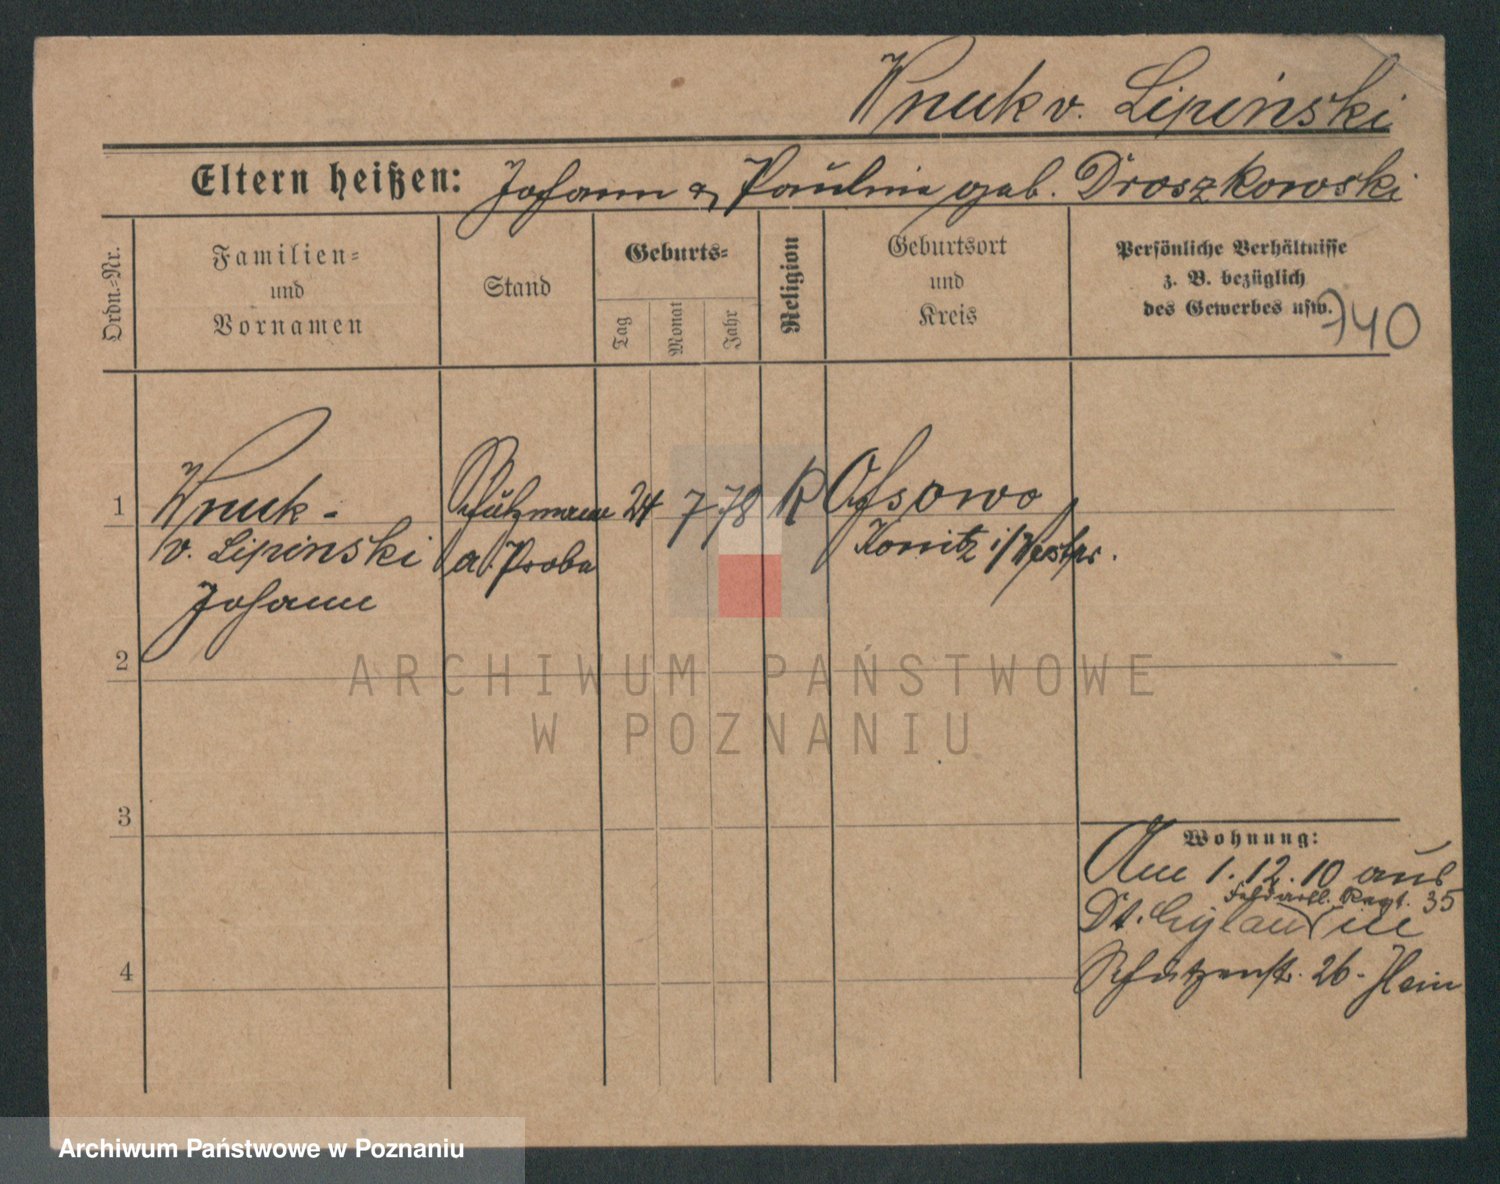 Wnuk v. Lipinski
Eltern heißen: Johann & Pauline geb. Droszkowski
Ordn.-Nr.
Familien-
und
Vornamen
Stand
Geburts-
Tag
Monat
Jahr
Religion
Geburtsort
und
Kreis
Persönliche Verhältnisse
z. B. bezüglich
des Gewerbes usw.
740
1
Wnuk -
v. Lipinski
Johann
Schutzmann
a. Probe
24 7 78 K
Ossowo
Konitz i/Westpr.
2
3
4
Wohnung:
Am 1.12.10 aus
Feldartl. Regt. 35
Dt. Eylau in
Schützenstr. 26. Hein
ARCHIWUM PAŃSTWOWE
W POZNANIU
Archiwum Państwowe w Poznaniu